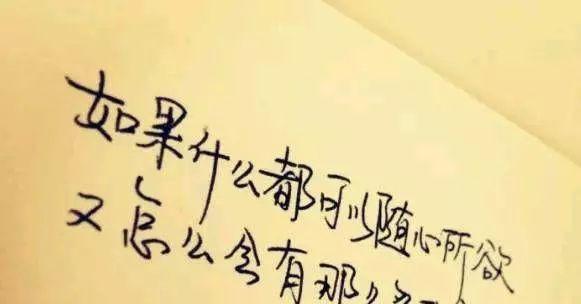 如果什么都可以随心所欲
又怎么会有那